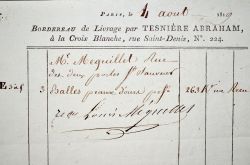 PARIS, le 4 août 1819
BORDEREAU de Livrage par TESNIÈRE ABRAHAM,
à la Croix Blanche, rue Saint-Denis, N°. 224.
Mr. Mequillet Rue
des deux portes St Sauveur
3 Balles peaux d'ours 263 K
reçu Louis Mequillet